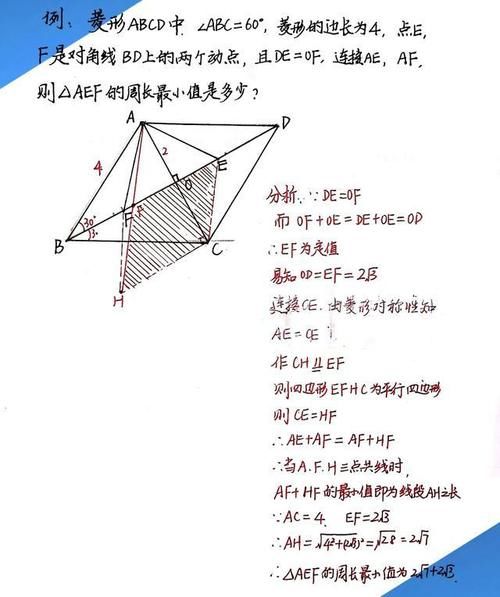 例: 菱形ABCD中 ∠ABC=60°, 菱形的边长为4, 点E,
F是对角线BD上的两个动点, 且DE=OF, 连接AE, AF,
则△AEF的周长最小值是多少?
A
D
4
2
E
O
F
F
30°
B
C
H
分析: ∵DE=OF
而 OF+OE=DE+OE=OD
∴EF为定值
易知OD=EF=2√3
连接CE, 由菱形对称性知
AE=CE
作CH⫫EF
则四边形EFHC为平行四边形
则CE=HF
∴AE+AF=AF+HF
∴当A.F.H三点共线时,
AF+HF的最小值即为线段AH之长
∵AC=4. EF=2√3
∴AH=√4²+(2√3)²=√28=2√7
∴△AEF的周长最小值为2√7+2√3.